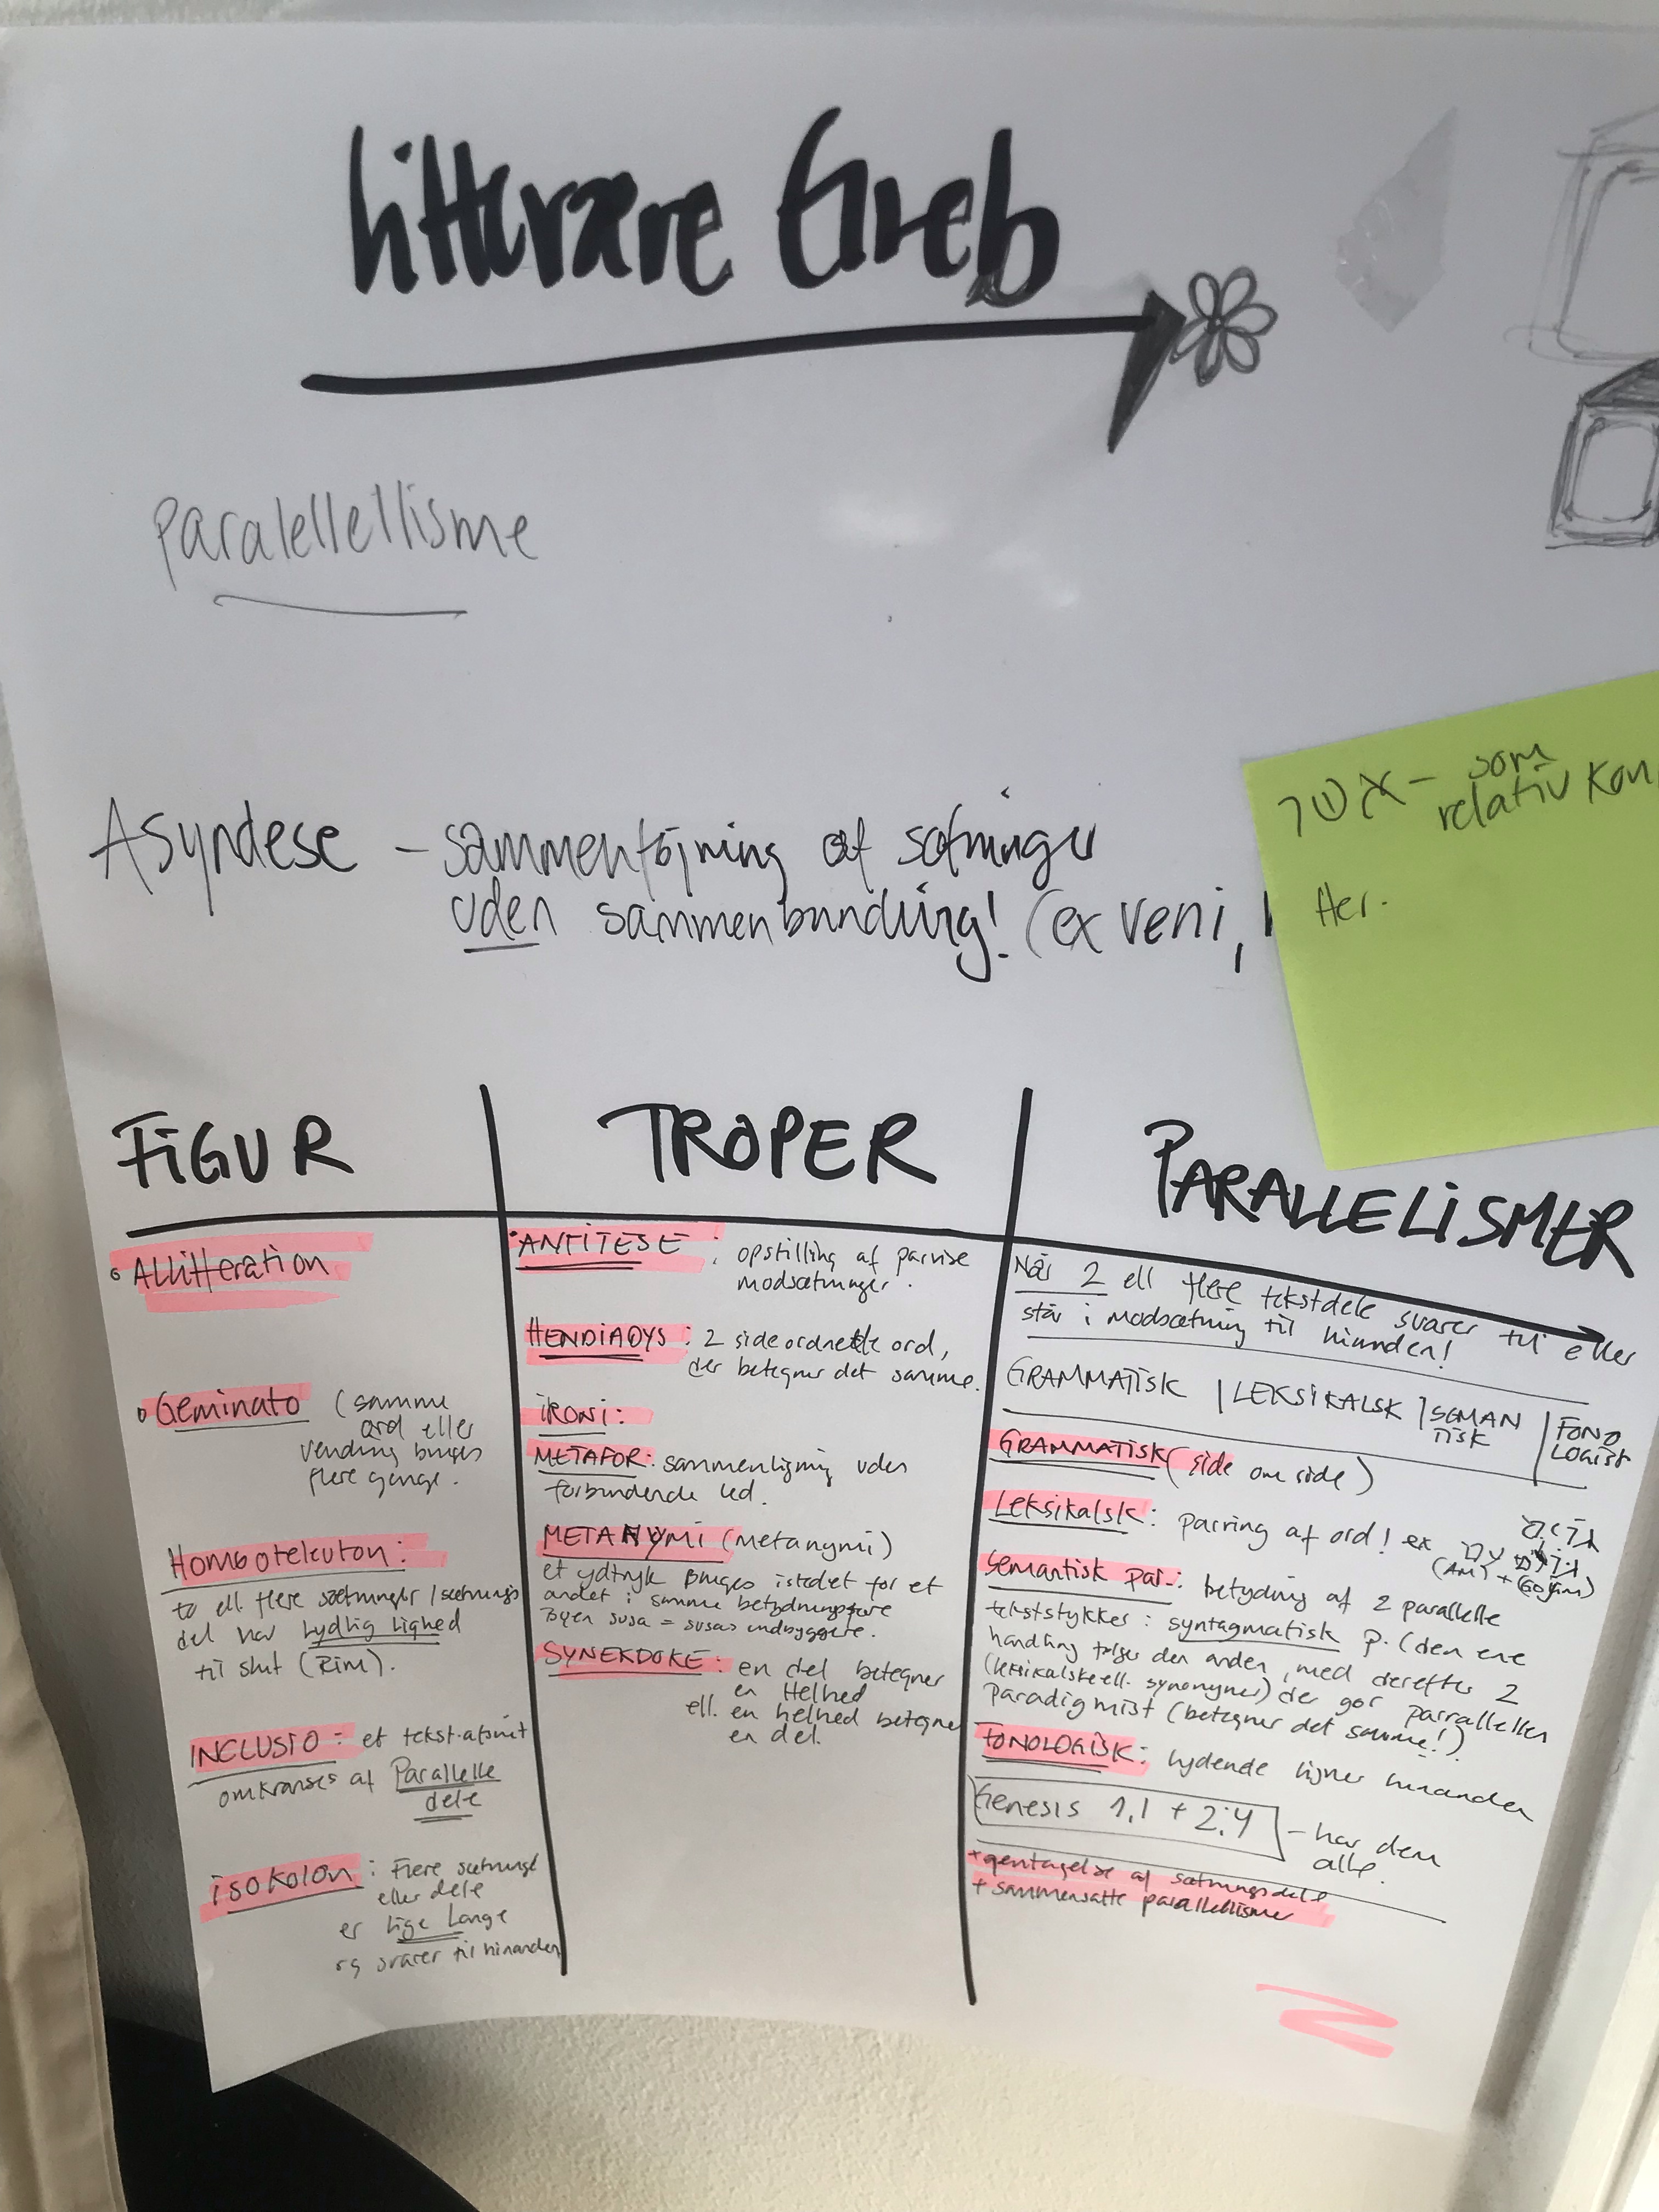 Litterære Greb
Paralellellisme
Asyndese – sammenføjning af sætninger
uden sammenbinding! (ex veni,
אשר – som
relativ kon
Her.
FIGUR
TROPER
PARALLELISMER
Allitteration
Geminato (samme
ord eller
vending bruges
flere gange.
Homootekuton:
to ell. flere sætninger/sætnings
del har lydlig lighed
til slut (Rim).
INCLUSIO: et tekst-afsnit
omkranses af Parallelle
dele
isokolon: Flere sætninge
eller dele
er lige lange
og svarer til hinanden
ANTITESE: opstilling af parvise
modsætninger.
HENDIADYS: 2 sideordnede ord,
der betegner det samme.
IRONI:
METAFOR: sammenligning uden
forbindende led.
METANYMI (metanymi)
et udtryk bruges istedet for et
andet i samme betydningssfære
Byen susa = susas indbyggere.
SYNEKDOKE: en del betegner
en Helhed
ell. en helhed betegne
en del.
Når 2 ell flere tekstdele svarer til eller
står i modsætning til hinanden!
GRAMMATISK | LEKSIKALSK | SEMAN | FONO
TISK LOGISK
GRAMMATISK (side om side)
Leksikalsk: parring af ord! ex
(Am) + (Gojim)
Semantisk par.: betydning af 2 parallelle
tekststykker: syntagmatisk p. (den ene
handling følger den anden, med derefter 2
(leksikalske ell. synonymer) der gør parallellen
Paradigmist (betegner det samme!)
FONOLOGISK: lydende ligner hinanden
Genesis 1,1 + 2:4 – har dem
alle.
+ gentagelse af sætningsdele
+ sammensatte parallellisme